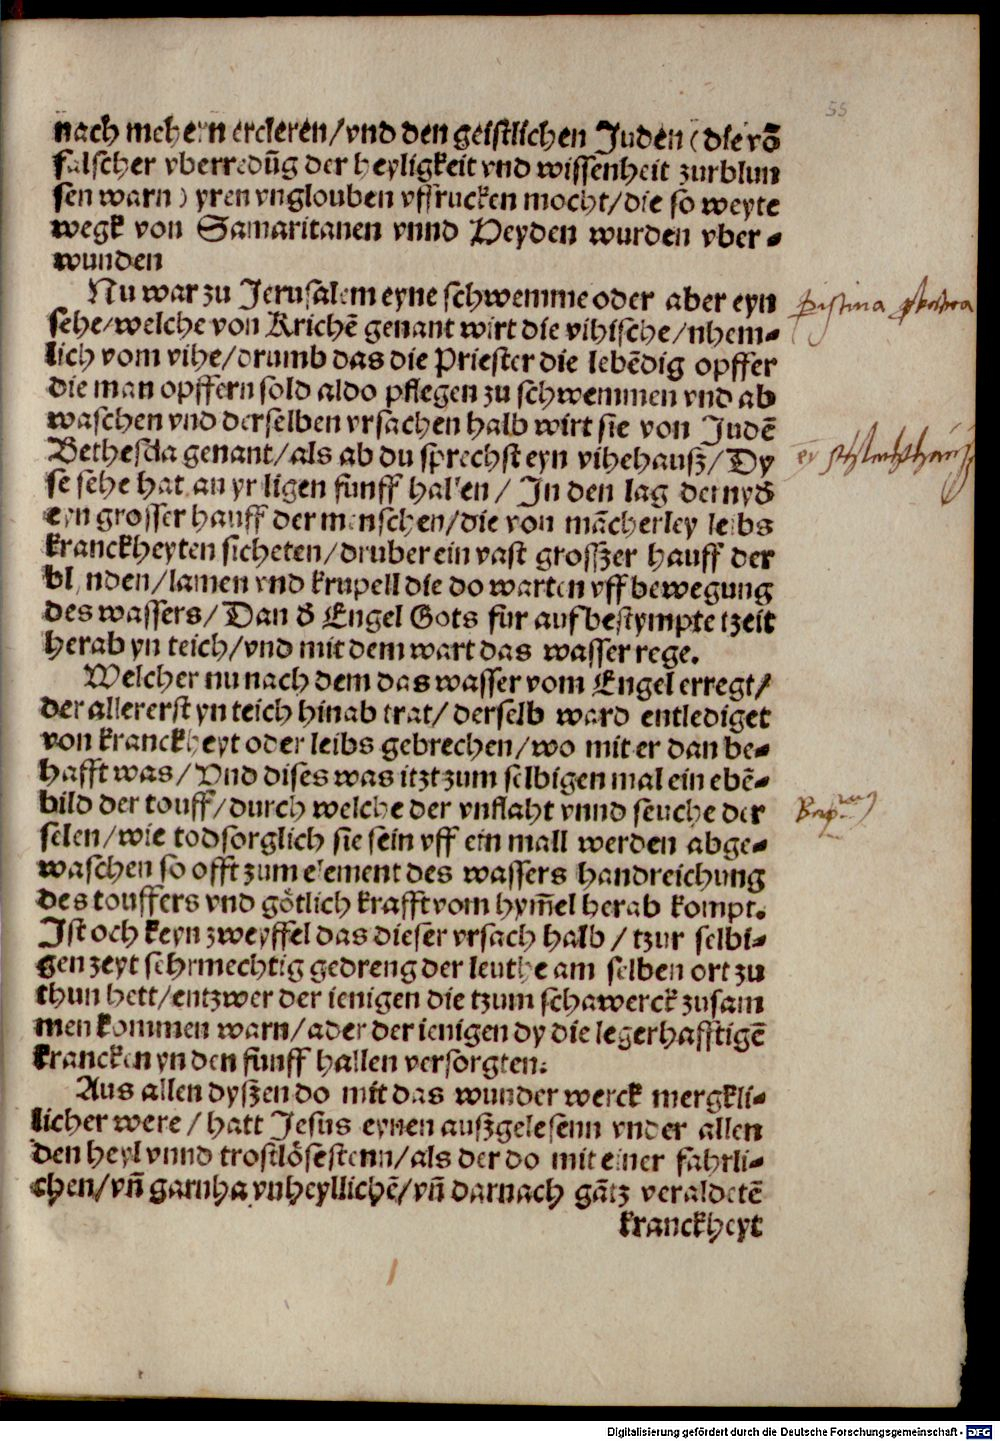 55
nach mehern ercleren/vnd den geistlichen Juden (die võ
falscher vberredũg der heyligkeit vnd wissenheit zurblun
sen warn) yren vnglouben vffrucken mocht/die so weyte
wegk von Samaritanen vnnd Heyden wurden vber-
wunden
Nu war zu Jerusalem eyne schwemme oder aber eyn
sehe/welche von Krichẽ genant wirt die vihische/nhem-
lich vom vihe/drumb das die Priester die lebẽdig opffer
die man opffern sold aldo pflegen zu schwemmen vnd ab
waschen vnd derselben vrsachen halb wirt sie von Judẽ
Bethesda genant/als ab du sprechst eyn vihehauß/Dy
se sehe hat an yr ligen funff hallen/ In den lag dernyd
eyn grosser hauff der menschen/die von mãcherley leibs
kranckheyten sicheten/druber ein vast grosszer hauff der
blinden/lamen vnd krupell die do warten vff bewegung
des wassers/Dan d Engel Gots fur auf bestympte tzeit
herab yn teich/vnd mit dem wart das wasser rege.
Welcher nu nach dem das wasser vom Engel erregt/
der allererst yn teich hinab trat/ derselb ward entlediget
von kranckheyt oder leibs gebrechen/wo mit er dan be-
hafft was/Vnd dises was itzt zum selbigen mal ein ebẽ-
bild der touff/durch welche der vnflaht vnnd seuche der
selen/wie todsorglich sie sein vff ein mall werden abge-
waschen so offt zum element des wassers handreichung
des touffers vnd götlich krafft vom hym̃el herab kompt.
Ist och keyn zweyffel das dieser vrsach halb / tzur selbi-
gen zeyt sehr mechtig gedreng der leuthe am selben ort zu
thun hett/entzwer der ienigen die tzum schawerck zusam
men kommen warn/ader der ienigen dy die legerhafftigẽ
krancken yn den funff hallen versorgten.
Aus allen dyszen do mit das wunder werck mergkli-
licher were / hatt Jesus eynen außgelesenn vnder allen
den heyl vnnd trostlösestenn/als der do mit einer fahrli-
chen/vñ garnha vnheyllichẽ/vñ darnach gãtz veraldetẽ
kranckheyt
Digitalisierung gefördert durch die Deutsche Forschungsgemeinschaft - DFG